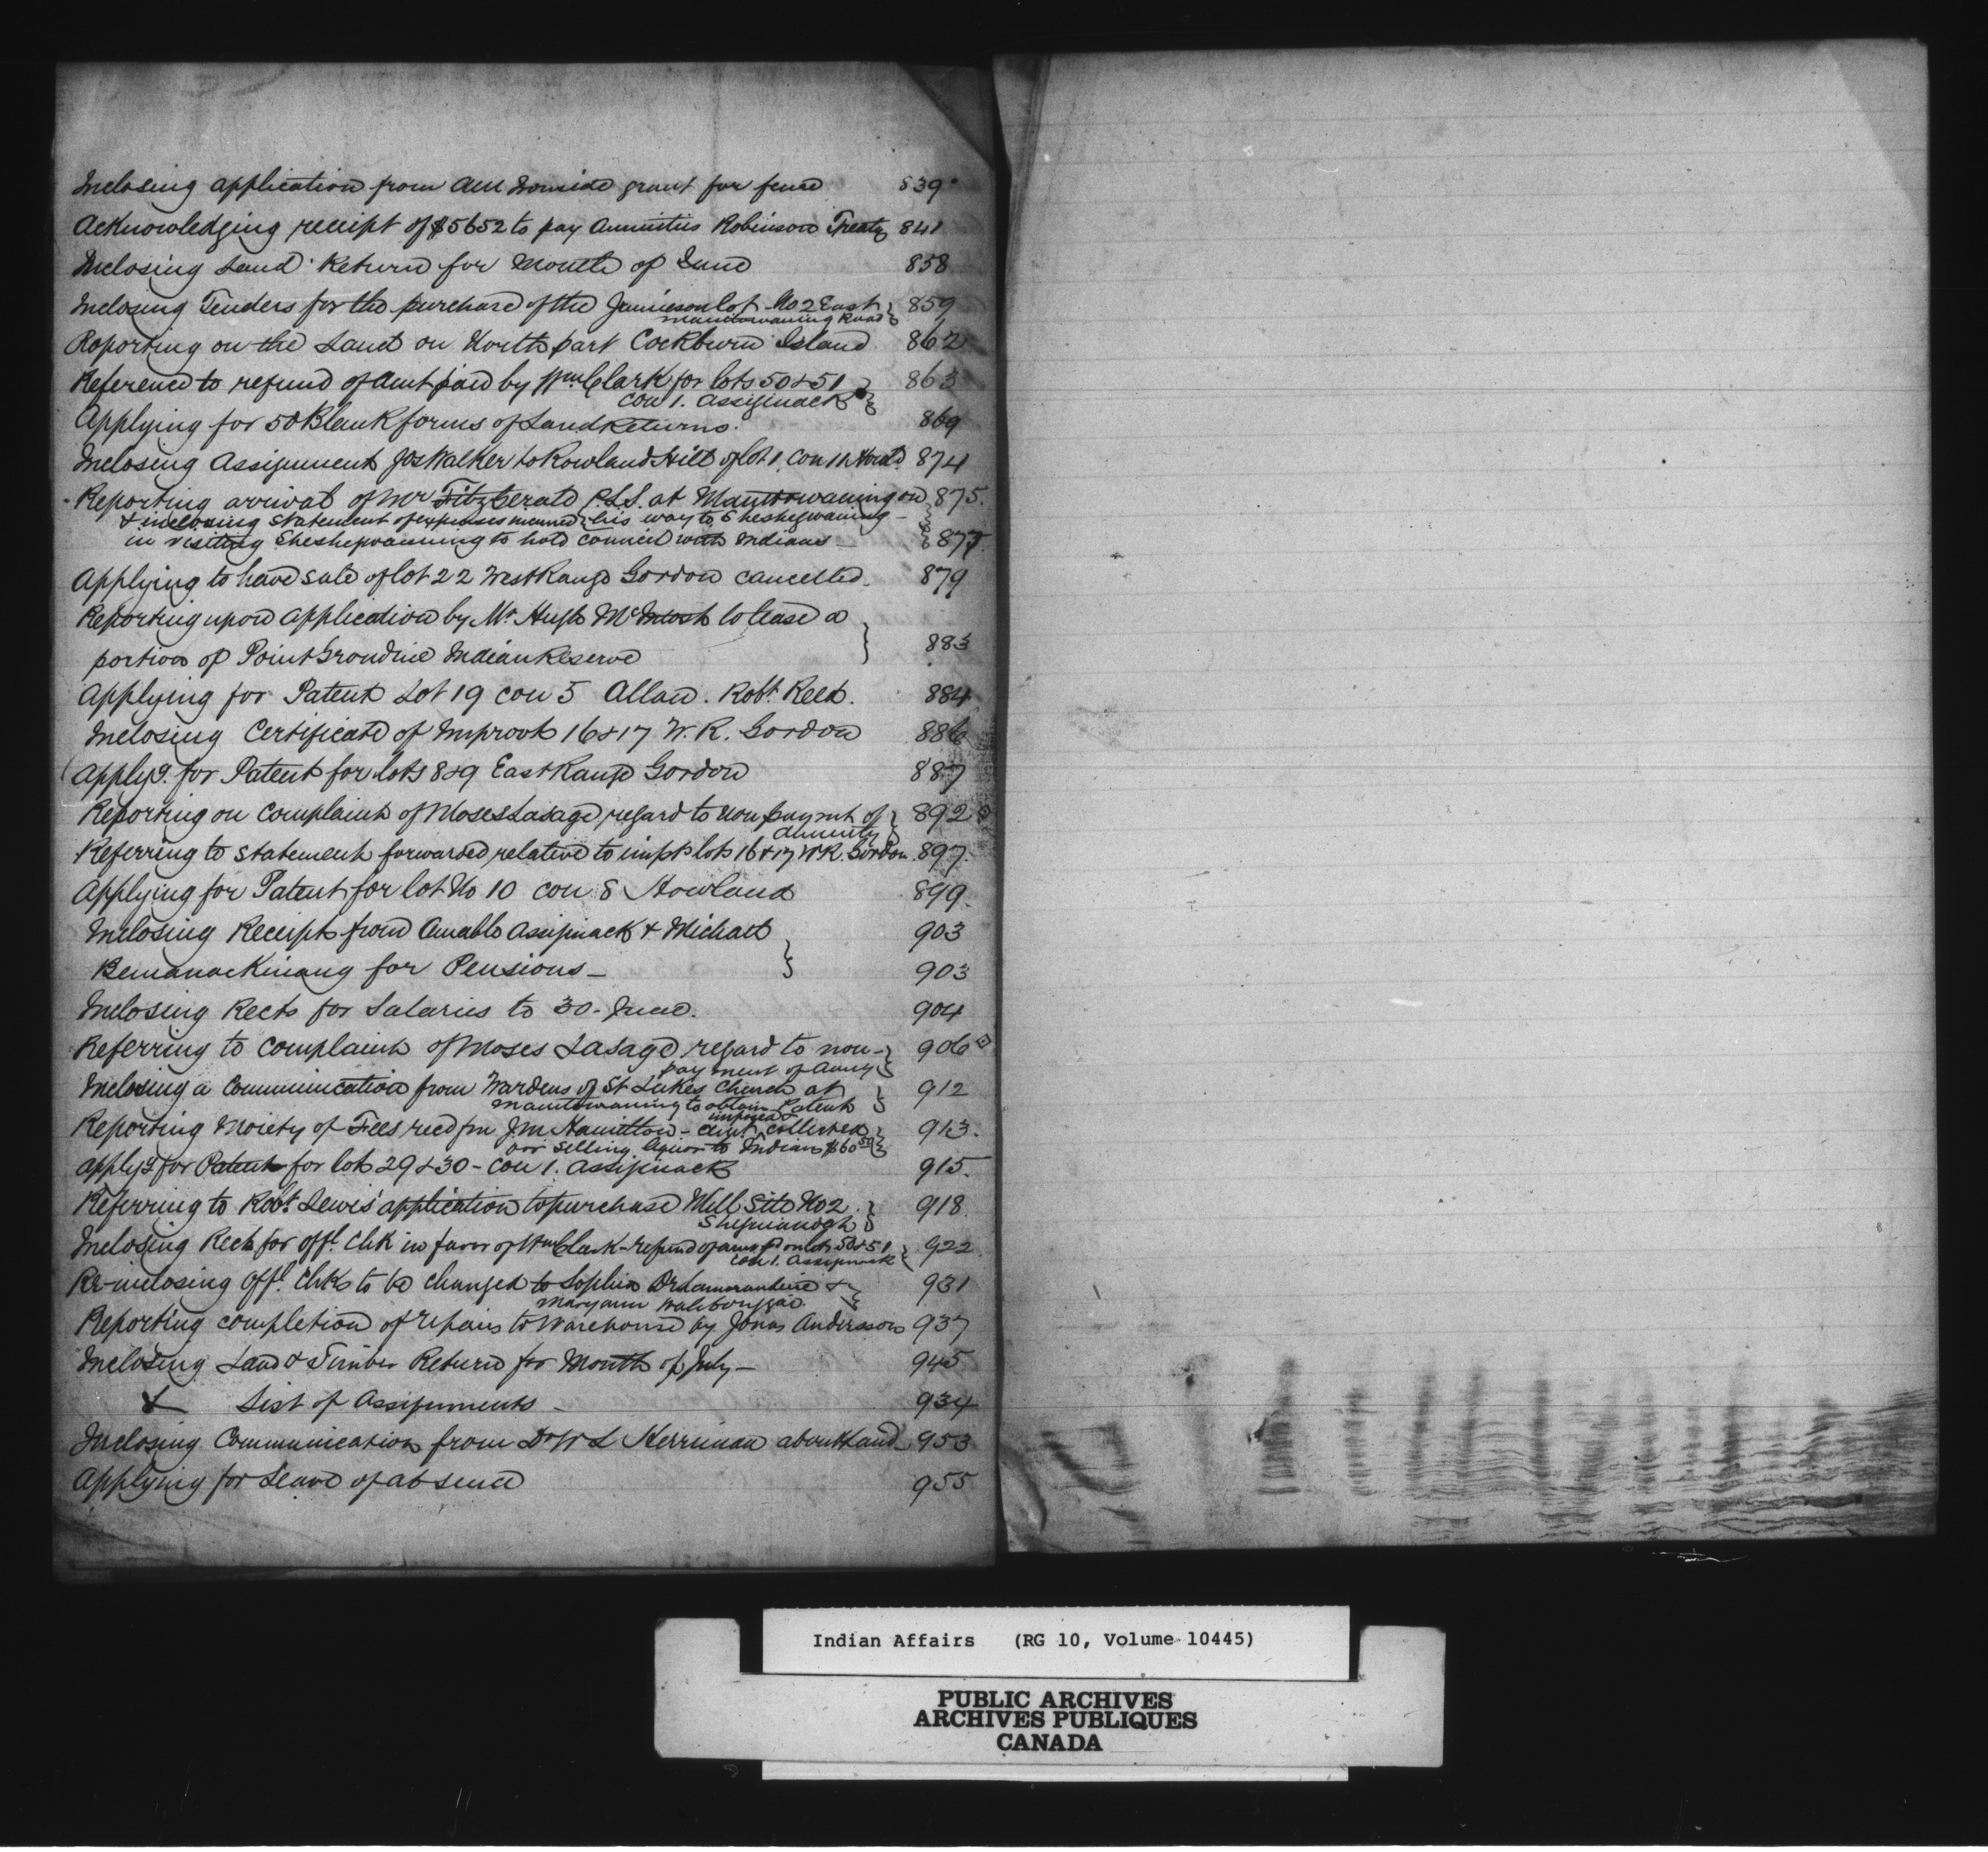 Inclosing application from grant for fence 839
Acknowledging receipt of $5652 to pay Annuities Robinson Treaty 841
Inclosing Land Return for Month of June 858
Inclosing Tenders for the purchase of the Jamieson lot No 2 East 859
Manitowaning Road
Reporting on the Land on North part Cockburn Island 862
Reference to refund of Amt paid by Wm Clark for lots 50 & 51 863
Con 1. Assiginack
Applying for 50 Blank forms of Land Returns. 869
Inclosing Assignment Jos Walker to Rowland Hill of lot 1, Con 11 Howld 874
Reporting arrival of Mr FitzGerald P.L.S. at Manitowaning on 875.
his way to Sheshegwaning -
& inclosing statement of expenses incurred
in visiting Sheshegwaning to hold Council with Indians - 877
Applying to have sale of lot 22 West Range Gordon cancelled. 879
Reporting upon application by Mr Hugh McIntosh to lease a
portion of Point Grondine Indian Reserve 883
Applying for Patent Lot 19 con 5 Allan. Robt Reed. 884
Inclosing Certificate of Improvts 16 & 17 W. R. Gordon 886
Applyg. for Patent for lots 8 & 9 East Range Gordon 887
Reporting on Complaint of Moses Lasage regard to non paymnt of 892
Annuity
Referring to statement forwarded relative to impts lots 16 & 17 W R. Gordon 897.
Applying for Patent for lot No 10 con 8 Howland 899.
Inclosing Receipts from Amable Assiginack & Michael 903
Bemanackinang for Pensions - 903
Inclosing Rects for Salaries to 30 - June. 904
Referring to Complaint of Moses Lasage regard to non- 906
payment of Anny
Inclosing a Communication from Wardens of St Lukes Church at 912
Manitowaning to obtain Patent
imposed &
Reporting Moiety of Fees recd fm J.M. Hamilton - amt collected 913.
for selling liquor to Indian $60
Applyg for Patent for lot 29 & 30 - Con 1. Assiginack 915.
Referring to Robt Lewis' application to purchase Mill Site No 2. 918.
Sheguiandah
Inclosing Rect for offl. Chk in favor of Wm Clark - refund of amt pd on lots 50 & 51 922.
Con 1. Assiginack
Re-inclosing Offl. Chk to be changed to Sophia De Lamorandiere & 931
Maryann
Reporting completion of repairs to Warehouse by Jonas Andersson 937
Inclosing Land & Timber Return for Month of July - 945
& List of Assignments - 934
Inclosing Communication from Dr W L Herriman about Land 953
Applying for Leave of absence 955
Indian Affairs (RG 10, Volume 10445)
PUBLIC ARCHIVES
ARCHIVES PUBLIQUES
CANADA